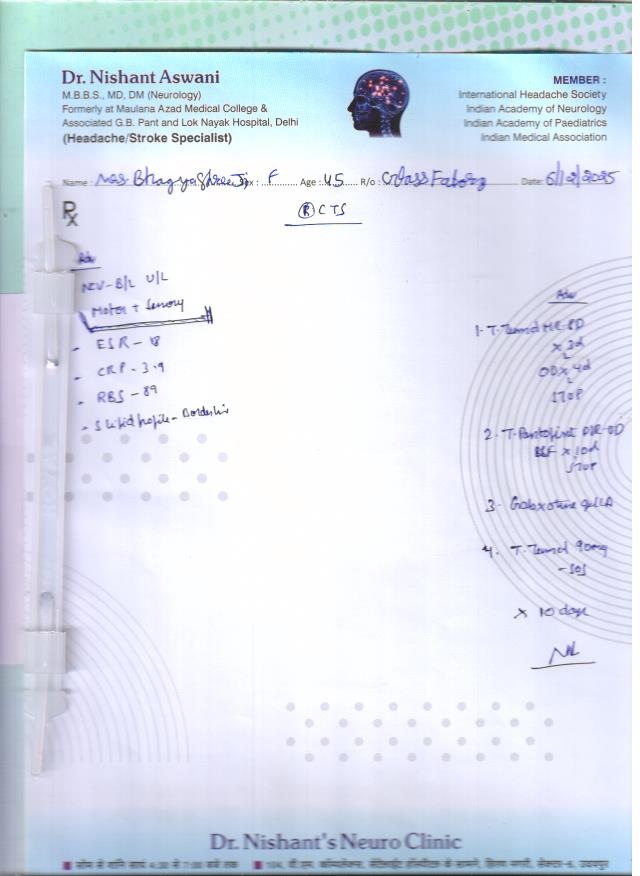 Dr. Nishant Aswani
M.B.B.S., MD, DM (Neurology)
Formerly at Maulana Azad Medical College &
Associated G.B. Pant and Lok Nayak Hospital, Delhi
(Headache/Stroke Specialist)
MEMBER :
International Headache Society
Indian Academy of Neurology
Indian Academy of Paediatrics
Indian Medical Association
Name : Mrs Bhagyashree Sex : F Age : 45 R/o : Date: 6/12/2025
Rx
(R) CTS
Adv
NCV - B/L U/L
Motor + Sensory
- ESR - 18
- CRP - 3.9
- RBS - 89
- S lipid profile - Borderline
Adv
1. T.
x 3d
OD x 4d
STOP
2. T. DSR-OD
BBF x 10d
STOP
3. gel LA
4. T. 90mg
- SOS
x 10 days
Dr. Nishant's Neuro Clinic
सोम से शनि सायं 4:30 से 7:00 बजे तक 104, सेक्टर-4, उदयपुर